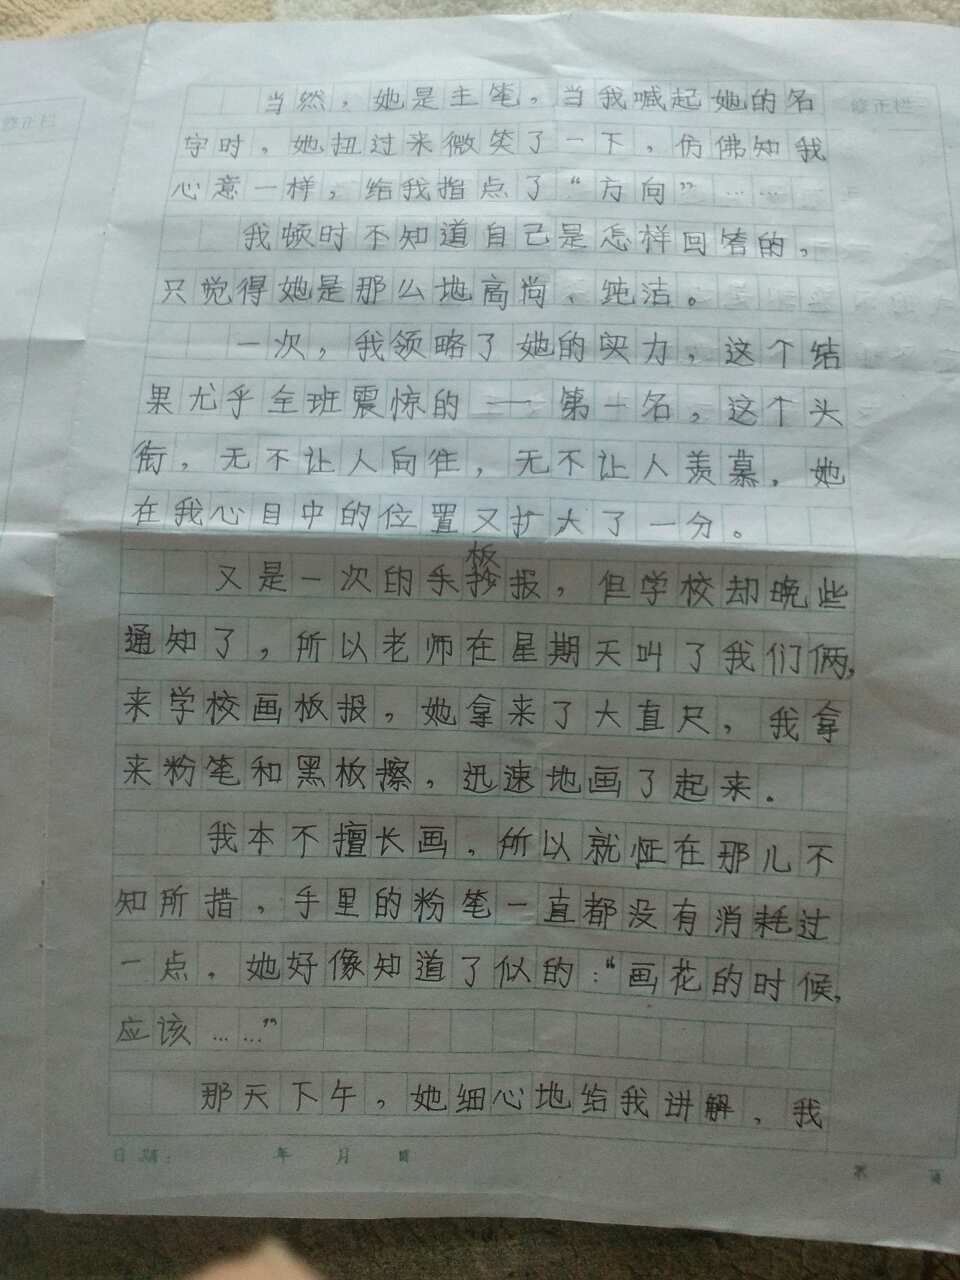 修正栏
修正栏
当然，她是主笔，当我喊起她的名
字时，她扭过来微笑了一下，仿佛知我
心意一样，给我指点了“方向”……
我顿时不知道自己是怎样回答的，
只觉得她是那么地高尚、纯洁。
一次，我领略了她的实力，这个结
果尤乎全班震惊的——第一名，这个头
衔，无不让人向往，无不让人羡慕，她
在我心目中的位置又扩大了一分。
板
又是一次的手抄报，但学校却晚些
通知了，所以老师在星期天叫了我们俩，
来学校画板报，她拿来了大直尺，我拿
来粉笔和黑板擦，迅速地画了起来．
我本不擅长画，所以就怔在那儿不
知所措，手里的粉笔一直都没有消耗过
一点，她好像知道了似的：“画花的时候，
应该……”
那天下午，她细心地给我讲解，我
日期： 年 月 日
第 页